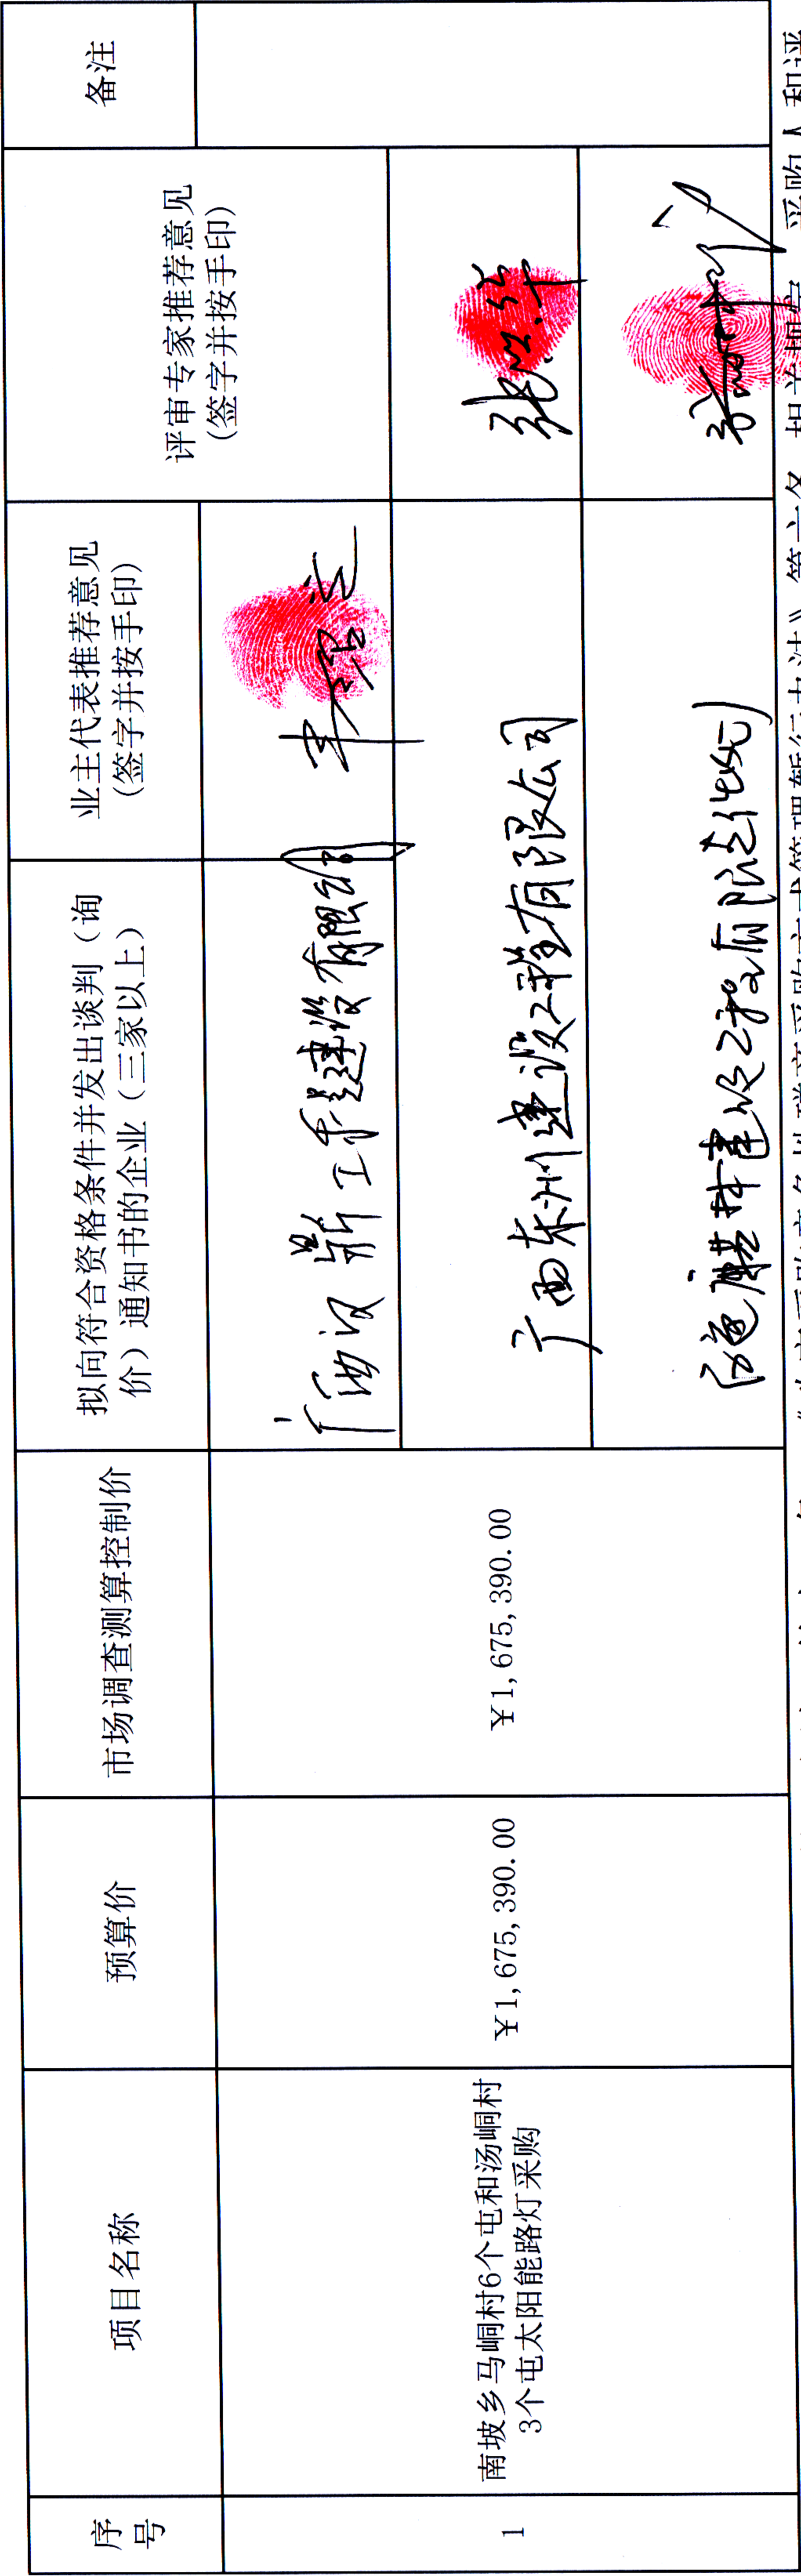 序号
项目名称
预算价
市场调查测算控制价
拟向符合资格条件并发出谈判（询
价）通知书的企业（三家以上）
业主代表推荐意见
(签字并按手印)
评审专家推荐意见
(签字并按手印)
备注
1
南坡乡马峒村6个屯和汤峒村
3个屯太阳能路灯采购
¥1,675,390.00
¥1,675,390.00
广西汉鼎工程建设有限公司
广西东州建设工程有限公司
建设工程有限责任公司
相关规定，采购人和评